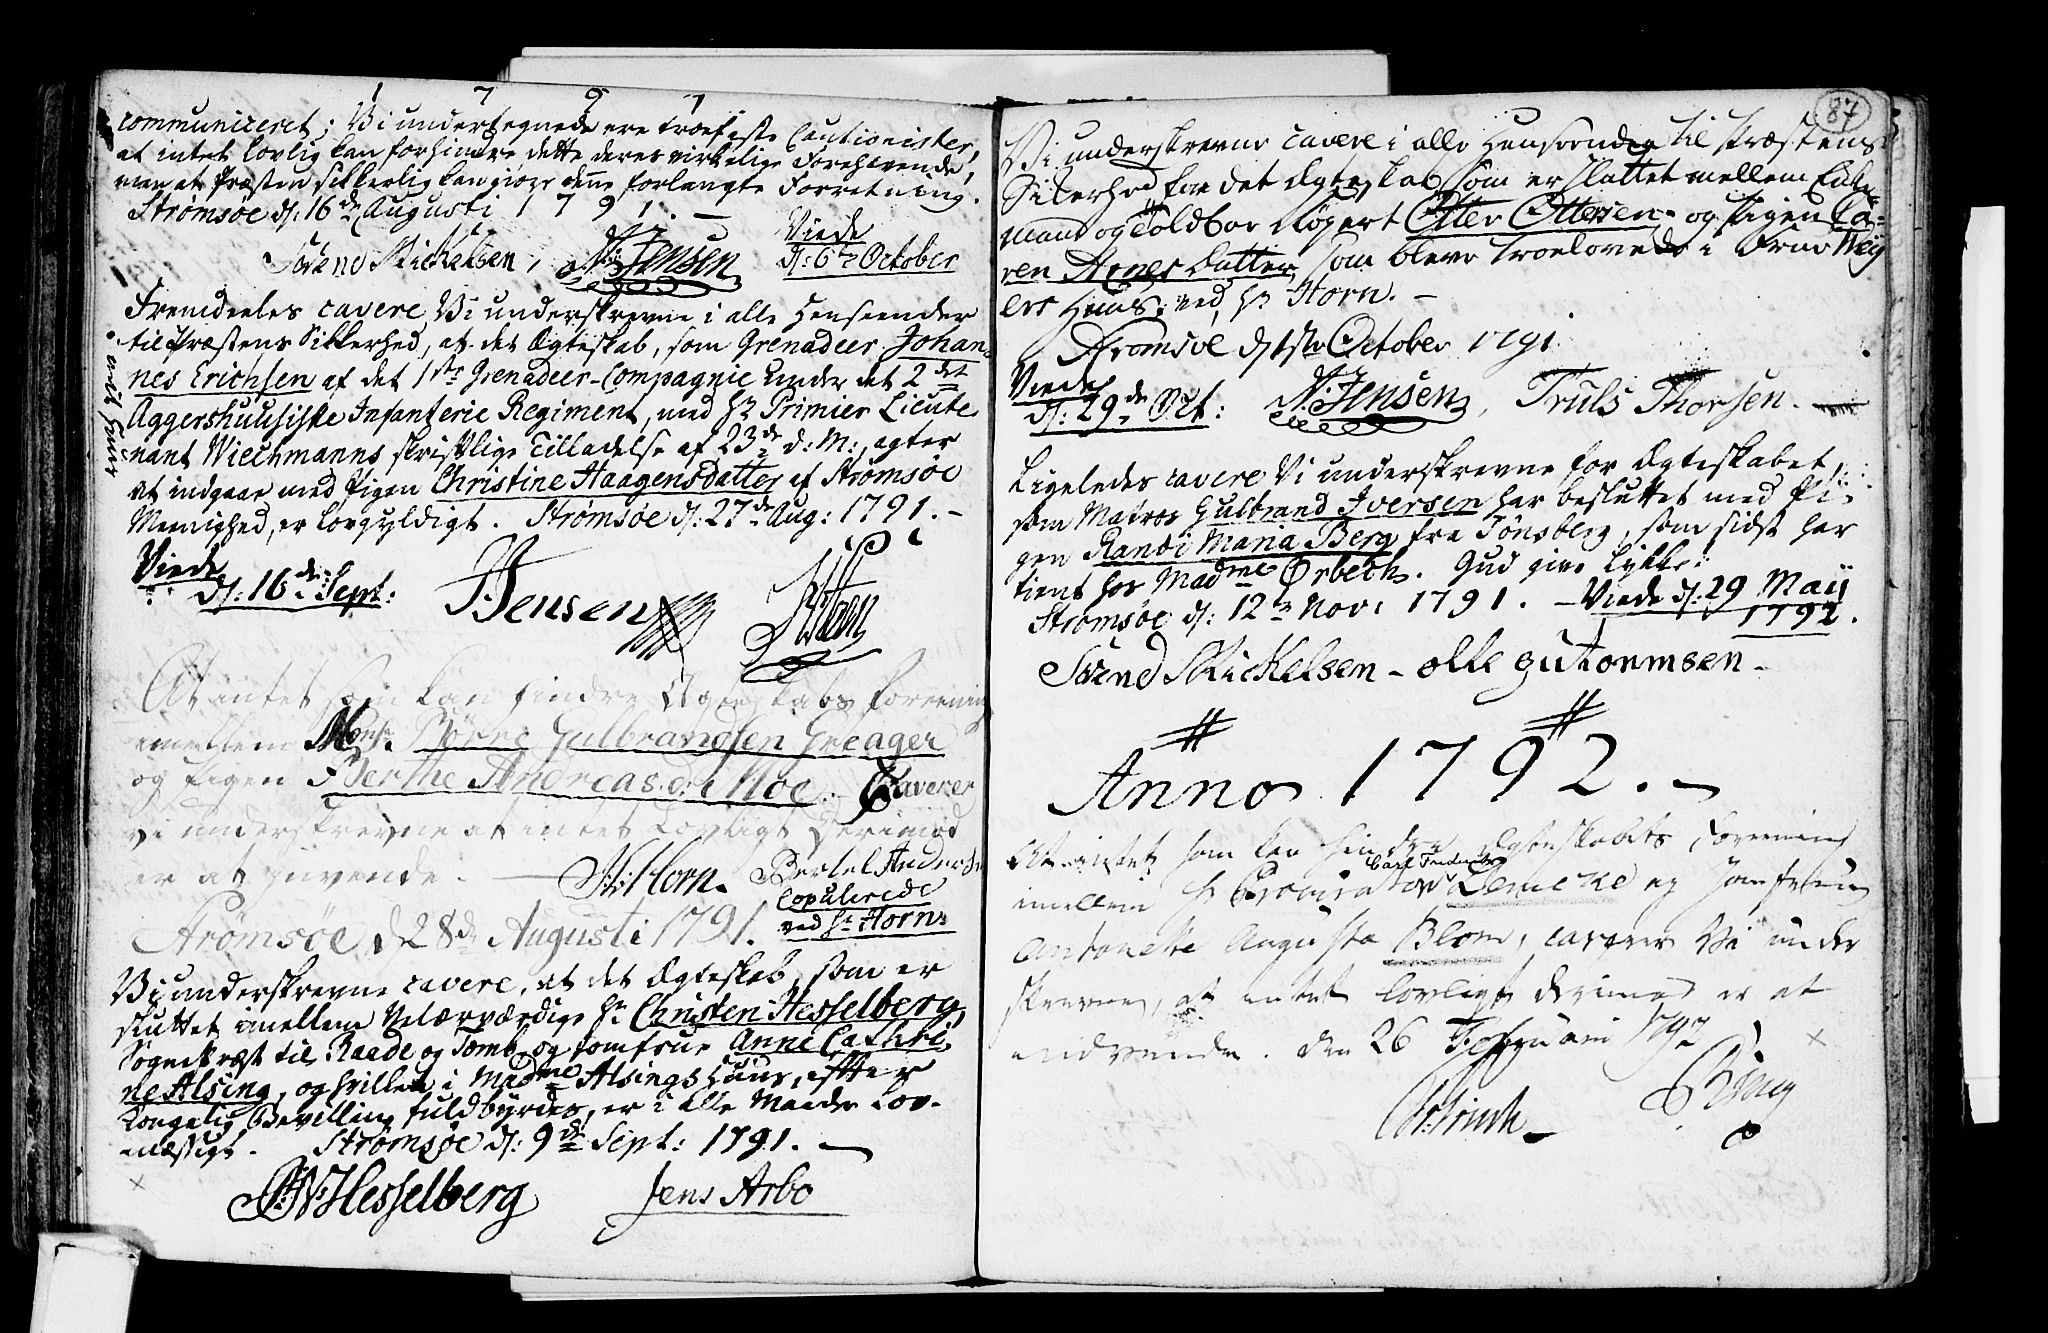 1 7 9 1
communiceret; Vi undertegnede ere troefaste Cautionister,
at intet lovlig kan forhindre dette deres virkelige Forehavende,
men at Præsten sikkerlig kan giøre denne forlangte Forretning.
Strømsøe d: 16de Augusti 1791. –
Svend Mickelsen, N: Jensen
Viede
d: 6te October
Fremdeeles cavere Vi underskrevne i alle Henseender
til Præstens Sikkerhed, at det Ægteskab, som Grenadeer Johan-
nes Erichsen af det 1ste Grenadeer-Compagnie under det 2det
Aggershuusiske Infanterie Regiment, med Hr Primier Lieute
nant Wiechmanns skriftlige Tilladelse af 23de d: M:, agter
at indgaae med Pigen Christine Haagensdatter af Strømsøe
Menighed, er lovgyldigt. Strømsøe d: 27de Aug: 1791. –
Viede
d: 16de Sept:
Jensen
At intet som kan hindre Ægteskabs foreening
imellem Mons. Børre Gulbrandsen Greager
og Pigen Berthe Andreas d: Moe. Caverer
vi underskrevne at intet Lovligt derimod
er at givende. –
N: Horn. Bertel Anders
Strømsøe d 28de Augusti 1791.
Copulerede
ved Hr Horn
Vi underskrevne cavere, at det Ægteskab, som er
sluttet imellem Velærværdige Hr Christen Hesselberg,
Sognepræst til Raade og Tomb, og Jomfrue Anne Cathri-
ne Alsing, og hvilket i Madme Alsings Huus, efter
Kongelig Bevilling fuldbyrdes, er i alle Maader Lov-
mæssigt. Strømsøe d: 9de Sept: 1791. –
Hesselberg Jens Arbo
87
Vi underskrevne cavere i alle Henseender til Præstens
Sikerhed for det Ægteskab som er sluttet mellem Enke-
mand og Toldbor Kløpert Otter Ottersen og Pigen Ca-
ren Arnes Datter, som bleve Troelovede i Arne Weÿ
ers Huus, ved Hr Horn. –
Strømsøe d 1ste October 1791
Viede
d: 29de Oct:
N: Jensen, Truls Thorsen. –
Ligeledes cavere Vi underskrevne for Ægteskabet,
som Matros Gulbrand Iversen har besluttet med Pi-
gen Randi Maria Berg fra Tønsberg, som sidst har
tient hos Madme Ørbech. Gud give Lykke:
Strømsøe d: 12te Nov: 1791. – Viede d: 29 Maÿ
1792.
Svend Mickelsen – olle gutormsen –
Anno 1792. –
At intet som kan hindre Ægteskabets Foreening
Carl Frederic
imellem Hr Procurator Lemcke og Jomfrue
Antonette Augusta Blom, caverer Vi under
skrevne, at intet lovligt derimod er at
indvende. den 26 Februarii 1792